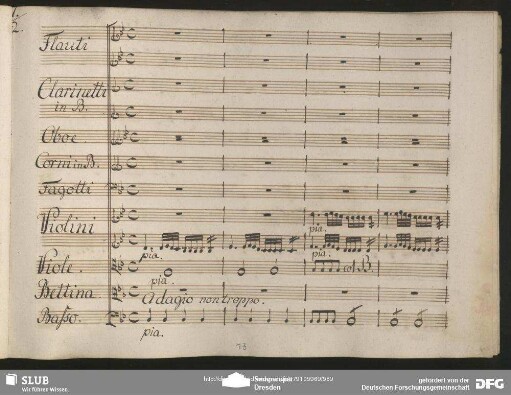 Flauti
Clarinetti
in B.
Oboe
Corni in B.
Fagotti
Violini
pia.
pia.
pia.
Viole.
pia.
B.
Bettina
Adagio non troppo.
Basso.
pia.
73
SLUB
Wir führen Wissen.
Dresden
gefördert von der
Deutschen Forschungsgemeinschaft
DFG